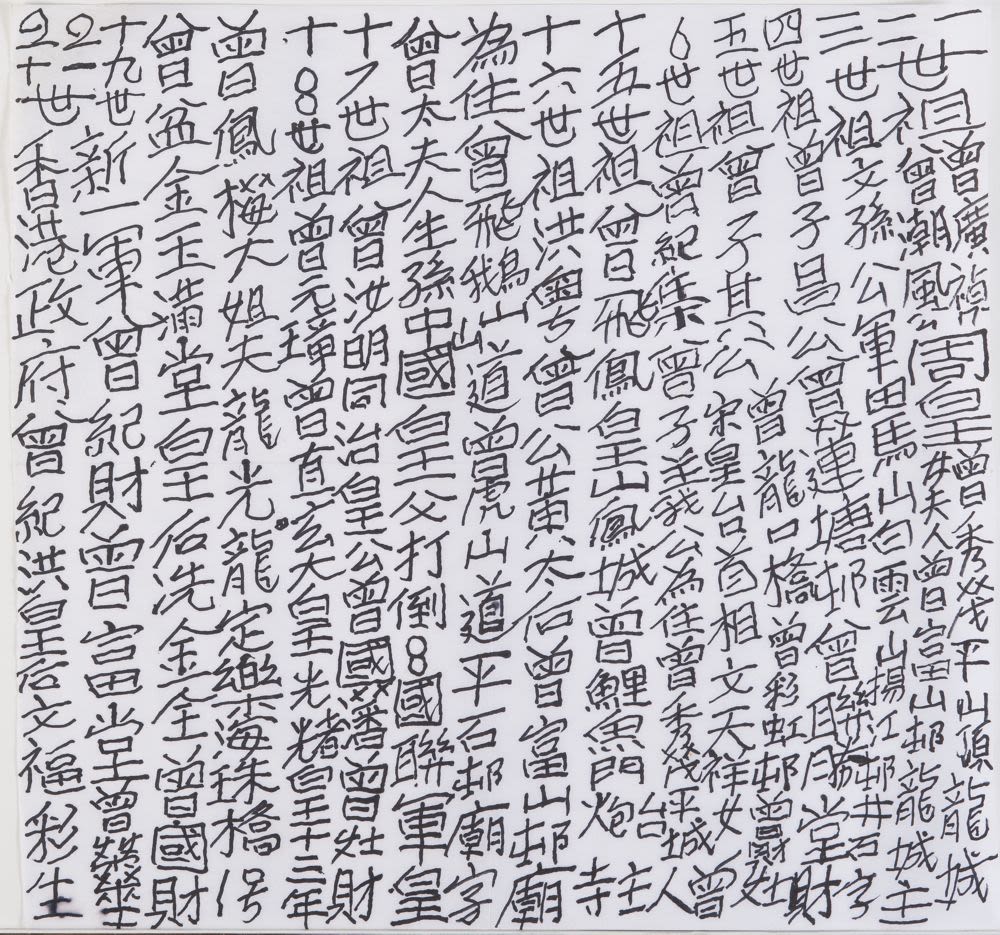 一世祖曾廣禎周皇曾秀茂平山頂龍城
二世祖曾潮風公夫人曾富山邨龍城主
三世祖文孫公軍田馬山白雲山揚江邨井石字
四世祖曾子昌公曾双連塘邨曾勝堂財
五世祖曾子其公曾龍口橋曾彩虹邨曾財灶
宋皇台首相文天祥女曾
6世祖曾紀集曾子主我公為住曾秀茂平城人
十五世祖曾飛鳳皇山鳳城曾鯉魚門炮台主寺
十六世祖洪粵曾公黃太后曾富山邨廟
為住曾飛鵝山道曾虎山道平石邨廟字
曾太夫人生孫中國皇父打倒8國聯軍皇
十7世祖曾汝明同治皇公曾國潘曾灶財
十8世祖曾元璋曾直玄夫皇光緒皇十三年
曾鳳梅大姐夫龍光龍定樂海珠橋
曾盆金玉滿堂皇后洗金全曾國財
十九世新一軍曾紀財曾富堂曾華
2十世香港政府曾紀洪皇后文福彩生